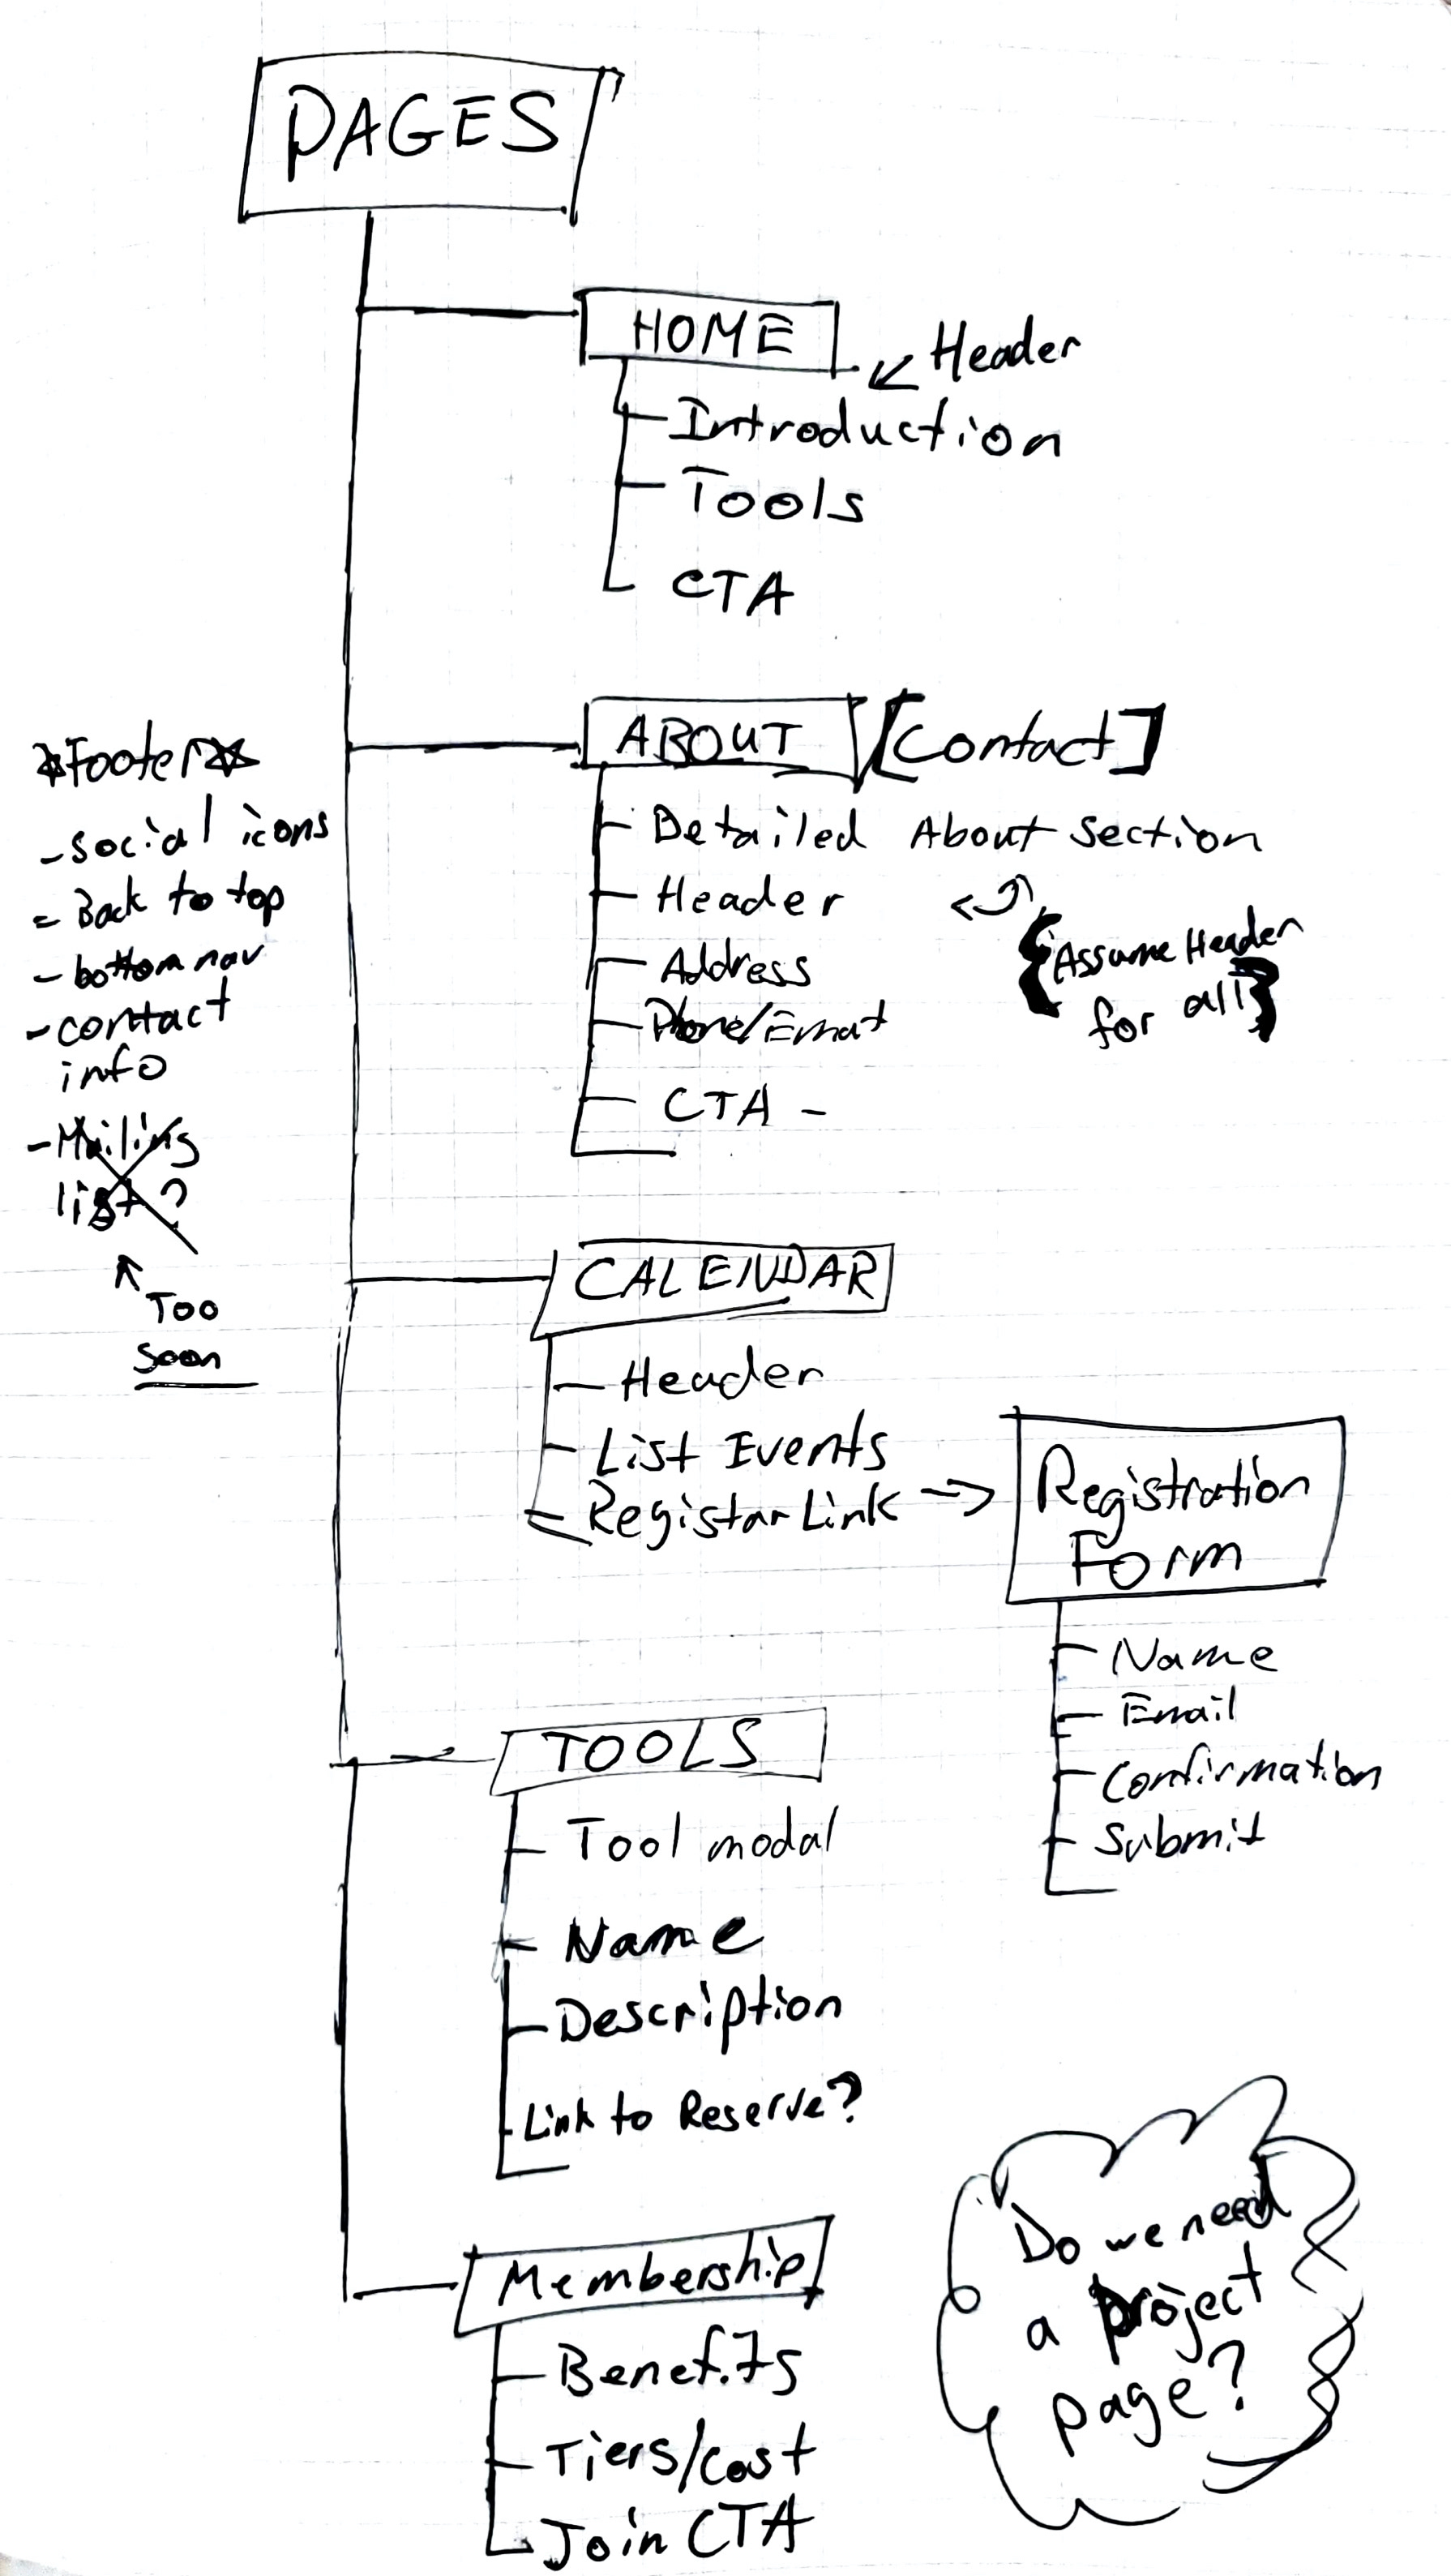 PAGES
HOME
Header
Introduction
Tools
CTA
ABOUT [Contact]
Detailed About Section
Header
Address
Phone/Email
CTA -
{Assume Header
for all}
*Footer*
- Social icons
- Back to top
- bottom nav
- contact
info
- Mailing
list?
Too
soon
CALENDAR
Header
List Events
Registar Link →
Registration
Form
Name
Email
Confirmation
Submit
TOOLS
Tool modal
Name
Description
Link to Reserve?
Membership
Benefits
Tiers/Cost
Join CTA
Do we need
a project
page?